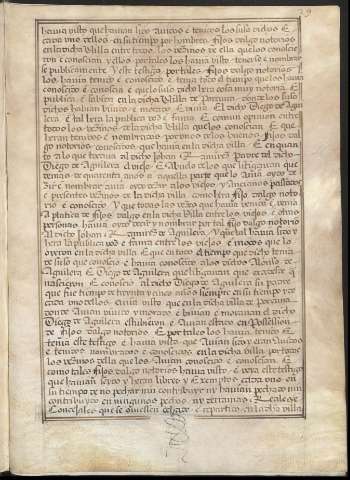 hauia visto que hauian sido Auidos e tenidos los suso dichos E
cada uno dellos en su tiempo por hombres fijos dalgo notorios
en la dicha villa entre todos los vezinos de ella que los conosçie
ron e conosçian y ellos por tales los hauia visto tenerse e nombrar
se publicamente y este testigo por tales fijos dalgo notorios
los hauia tenido e conosçido e tenia todo el tiempo que los hauia
conosçido e conosçia e que lo suso dicho hera cosa muy notoria E
publica e sabida en la dicha Villa de Porcuna donde los suso
dichos hauian biuido e morado E biuia El dicho Diego de Agui
lera e tal hera la publica voz e fama E comun opinion entre
todos los vezinos de la dicha Villa que los conosçian E que
heran tenidos e nombrados por vnos de los buenos fijos dal
go notorios conosçidos que hauia en la dicha villa E en quan
to a lo que tocaua al dicho Johan Ramirez Padre del dicho
Diego de Aguilera el viejo E Abuelo de los que litigauan que
demas de quarenta años a aquella parte que lo Auia oydo de
zir e nombrar auia oydo dezir a los viejos y Ancianos passados
e presentes vezinos de la dicha villa como hera fijo dalgo noto
rio e conosçido Y que todas las vezes que hauia venido e venia
a platica de fijos dalgo en la dicha villa entre los viejos e otras
personas hauia oydo dezir y nombrar por tal fijo dalgo notorio
al dicho Johan Ramirez de Aguilera Y que tal hauia sido y
hera la publica voz e fama entre los viejos e moços que lo
oyeron en la dicha villa E que en todo el tiempo que dicho tenia
de suso que conosçio e hauia conosçido a los dichos Alonso de
Aguilera E Diego de Aguilera que litigauan que era desde q̃
nasçieron E conosçio al dicho Diego de Aguilera su padre
que fue tiempo de treynta y cinco años siempre en su tiempo de
cada uno dellos auia visto que en la dicha villa de Porcuna
donde Auian biuido y morado e biuian e morauan el dicho
Diego de Aguilera estubieron e Auian estado en Possession
de fijos dalgo notorios E por tales los hauia tenido E
tenia este testigo e hauia visto que Auian sido y eran Auidos
e tenidos nombrados e conosçidos en la dicha villa por todos
los vezinos della que los Auian conosçido e conosçian E
como tales fijos dalgo notorios hauia visto e veia este testigo
que hauian seydo y heran libres y Exemptos cada vno en
su tiempo de no pechar nin contribuyr ny hauian pechado nin
contribuydo en ningunos pechos ny derramas Reales e
Conçejales que se ouiessen echado e repartido en la dicha villa